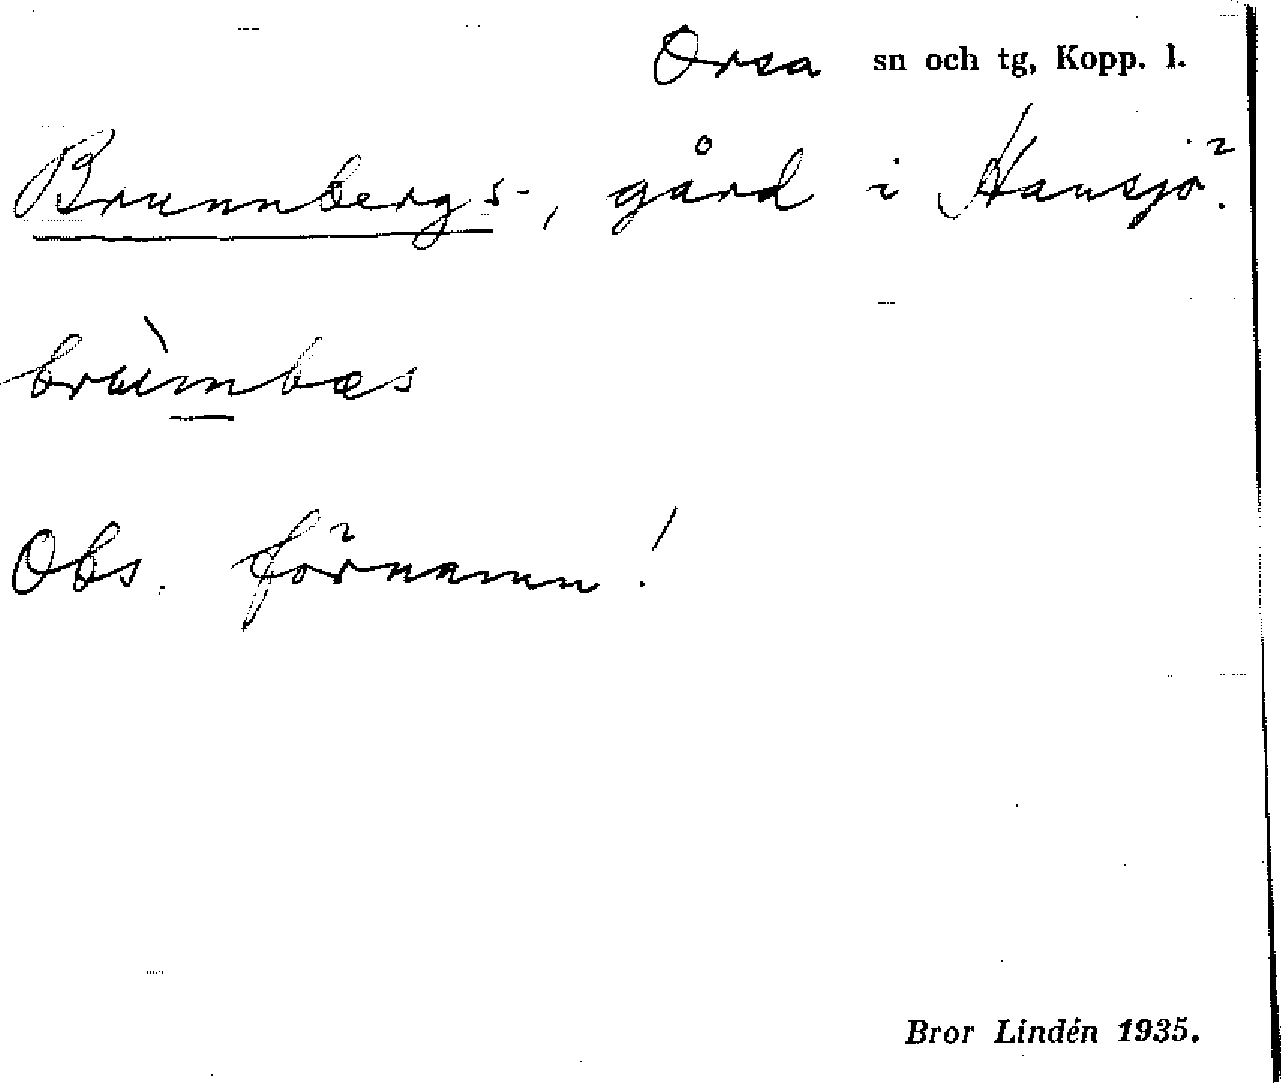 Orsa sn och tg, Kopp. l.
Brunnbergs-, gård i Hansjö.
brùmbæs
Obs. förnamn!
Bror Lindén 1935.